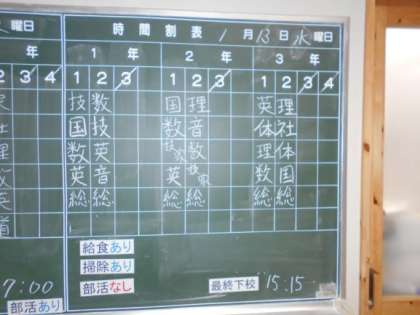 曜日 時間割表 1月13日水曜日
年 1年 2年 3年
2 3 4 1 2 3 1 2 3 1 2 3 4
技 数 国 理 英 理
社 国 技 数 音 体 社
理 数 英 技家 数 理 体
英 英 音 英 技家 数 国
総 総 総 総 総 総
道
給食あり
掃除あり
部活なし
最終下校 15:15
7:00
部活あり